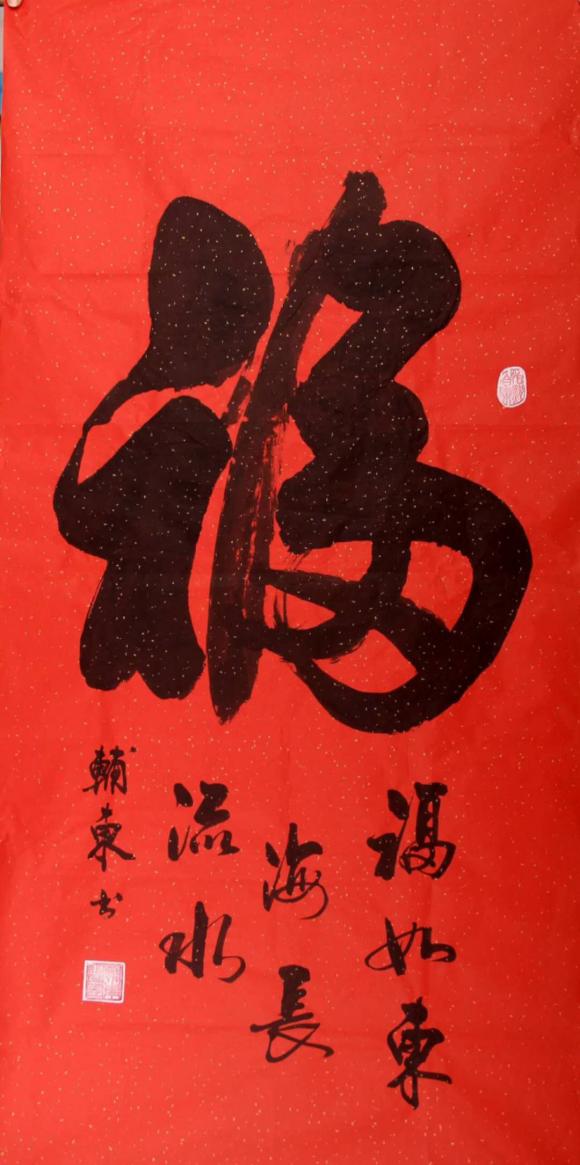 福
福如東
海長
流水
輔東书